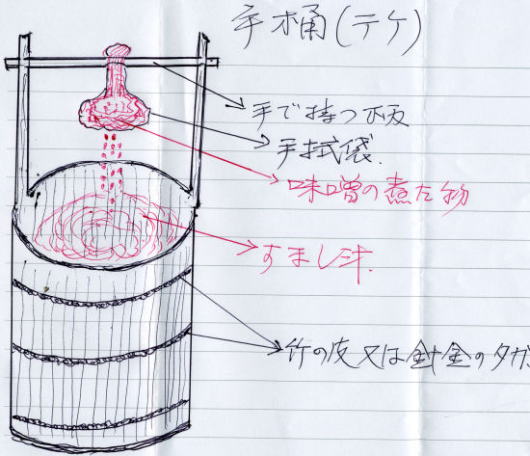 手桶(テケ)
手で持つ柄
手拭袋.
味噌の煮た物
すまし汁.
竹の皮又は針金のタガ